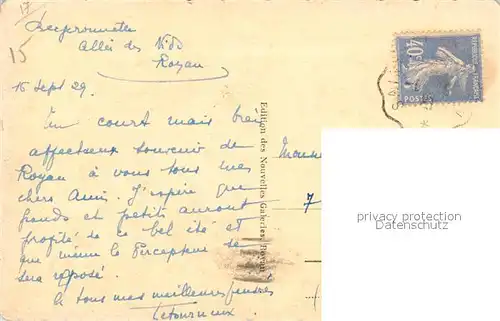 17
15
Allée des
Royan
15 Sept 29.
Un court mais bien
affectueux souvenir de
Royan à vous tous mes
chers Amis. J'espère que
grands et petits auront
profité de ce bel été et
que même le Percepteur se
sera reposé.
à tous mes meilleures pensées
Letourneux
Edition des Nouvelles Galeries, Royan
40c
POSTES
7
privacy protection
www.ansichtskarten-center.de